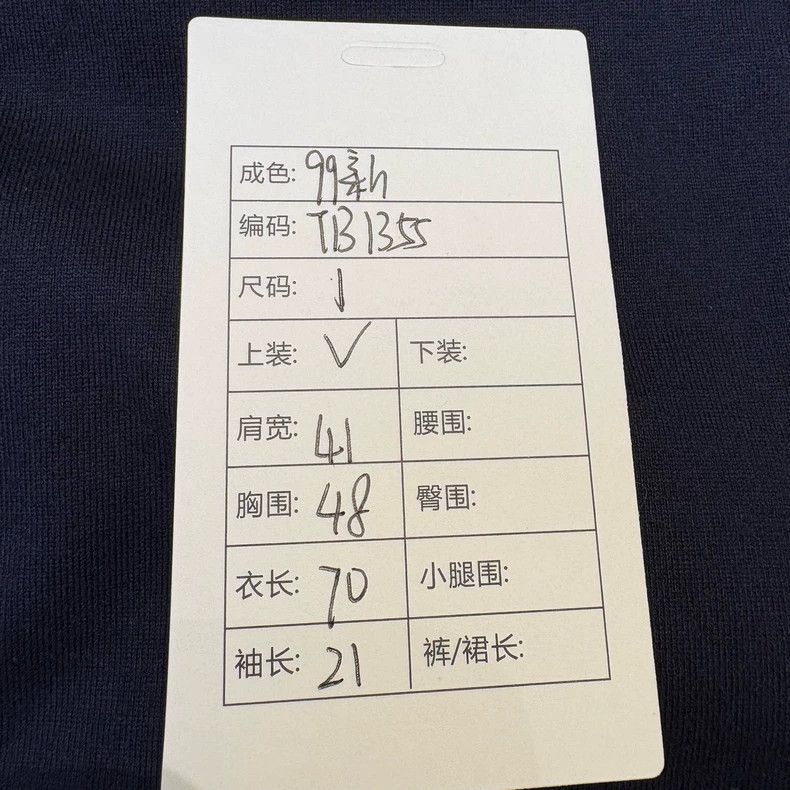 成色: 99新
编码: TB1355
尺码: 1
上装: ✓ 下装:
肩宽: 41 腰围:
胸围: 48 臀围:
衣长: 70 小腿围:
袖长: 21 裤/裙长: